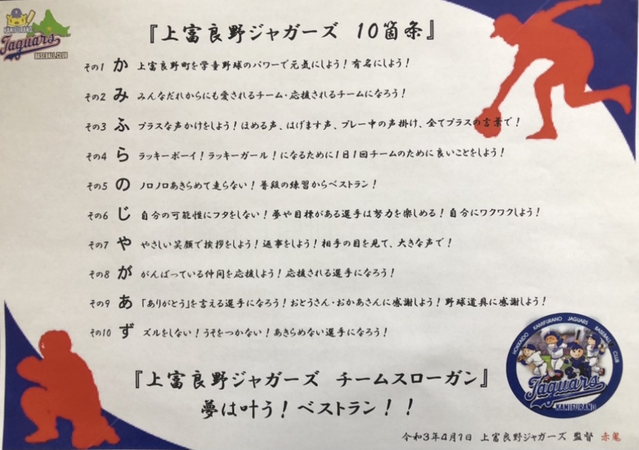 KAMIFURANO
Jaguars
BASEBALL CLUB
『上富良野ジャガーズ 10箇条』
その1 か 上富良野町を学童野球のパワーで元気にしよう！有名にしよう！
その2 み みんなだれからにも愛されるチーム・応援されるチームになろう！
その3 ふ プラスな声かけをしよう！ほめる声、はげます声、プレー中の声掛け、全てプラスの言葉で！
その4 ら ラッキーボーイ！ラッキーガール！になるために1日1回チームのために良いことをしよう！
その5 の ノロノロあきらめて走らない！普段の練習からベストラン！
その6 じ 自分の可能性にフタをしない！夢や目標がある選手は努力を楽しめる！自分にワクワクしよう！
その7 や やさしい笑顔で挨拶をしよう！返事をしよう！相手の目を見て、大きな声で！
その8 が がんばっている仲間を応援しよう！応援される選手になろう！
その9 あ 「ありがとう」を言える選手になろう！おとうさん・おかあさんに感謝しよう！野球道具に感謝しよう！
その10 ず ズルをしない！うそをつかない！あきらめない選手になろう！
HOKKAIDO KAMIFURANO JAGUARS BASEBALL CLUB
Jaguars
KAMIFURANO
『上富良野ジャガーズ チームスローガン』
夢は叶う！ベストラン！！
令和3年4月1日 上富良野ジャガーズ 監督 赤鬼